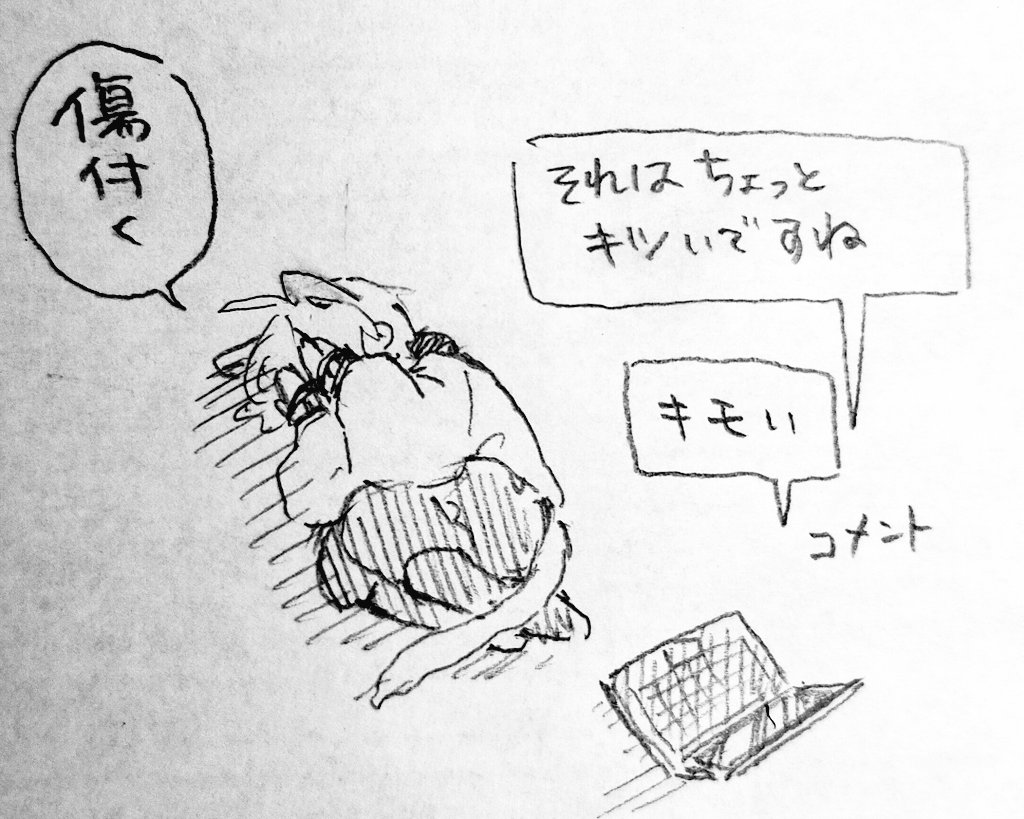 それはちょっと
キツいですね
キモい
コメント
傷付く